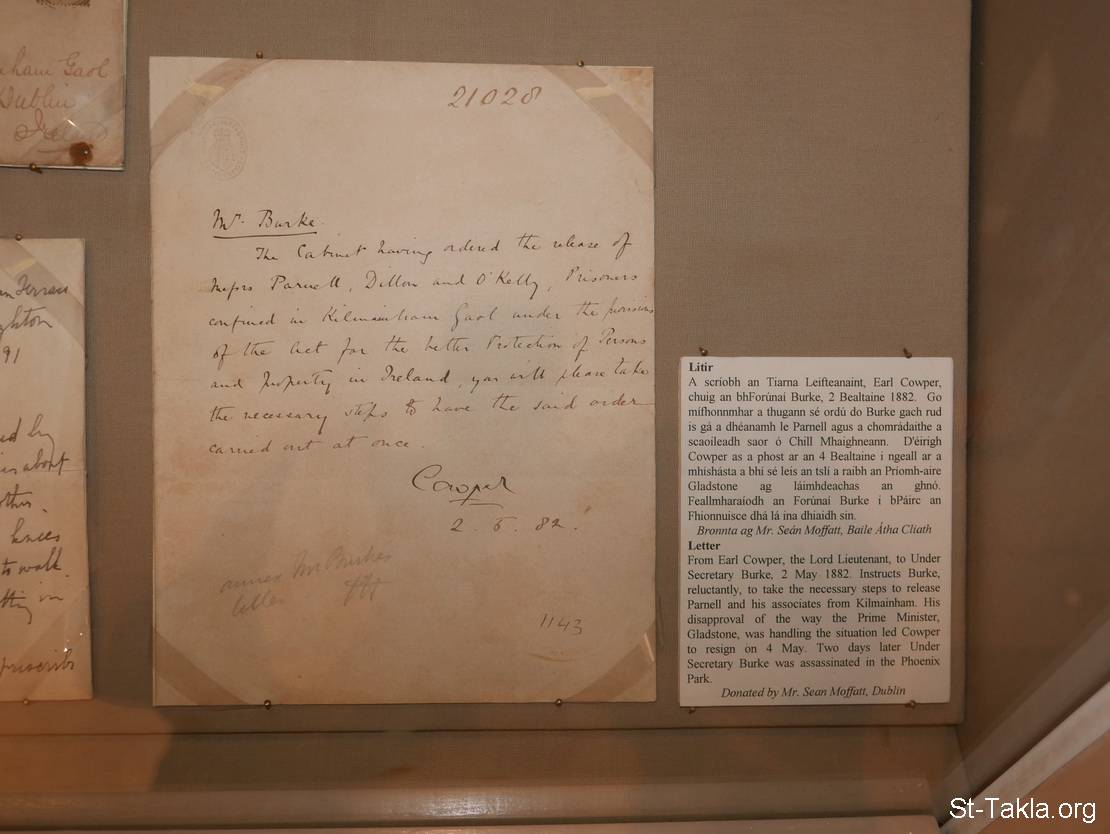 ham Gaol
Dublin
Ireland
21028
Mr. Burke.
The Cabinet having ordered the release of
Messrs Parnell, Dillon and O'Kelly, Prisoners
confined in Kilmainham Gaol under the provisions
of the Act for the better Protection of Persons
and Property in Ireland, you will please take
the necessary steps to have the said order
carried out at once.
Cowper
2. 5. 82.
annex Mr Burkes
letter
1143
91
by
about
knees
to walk
Litir
A scríobh an Tiarna Leifteanaint, Earl Cowper,
chuig an bhForúnaí Burke, 2 Bealtaine 1882. Go
mífhonnmhar a thugann sé ordú do Burke gach rud
is gá a dhéanamh le Parnell agus a chomrádaithe a
scaoileadh saor ó Chill Mhaighneann. D'éirigh
Cowper as a phost ar an 4 Bealtaine i ngeall ar a
mhíshásta a bhí sé leis an tslí a raibh an Príomh-aire
Gladstone ag láimhdeachas an ghnó.
Feallmharaíodh an Forúnaí Burke i bPáirc an
Fhionnuisce dhá lá ina dhiaidh sin.
Bronnta ag Mr. Seán Moffatt, Baile Átha Cliath
Letter
From Earl Cowper, the Lord Lieutenant, to Under
Secretary Burke, 2 May 1882. Instructs Burke,
reluctantly, to take the necessary steps to release
Parnell and his associates from Kilmainham. His
disapproval of the way the Prime Minister,
Gladstone, was handling the situation led Cowper
to resign on 4 May. Two days later Under
Secretary Burke was assassinated in the Phoenix
Park.
Donated by Mr. Sean Moffatt, Dublin
St-Takla.org